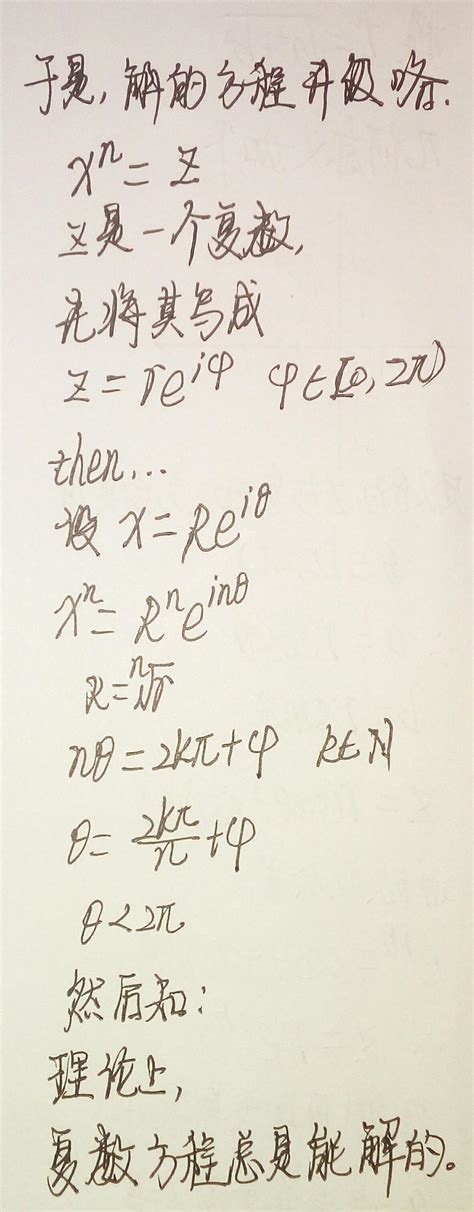 于是，解的方程升级咯.
xⁿ = z
z是一个复数,
先将其写成
z = re^{iφ} φ∈[0, 2π)
then...
设 x = Re^{iθ}
xⁿ = Rⁿe^{inθ}
R = ⁿ√r
nθ = 2kπ + φ k∈N
θ = \frac{2kπ}{n} + φ
θ < 2π
然后知：
理论上,
复数方程总是能解的。